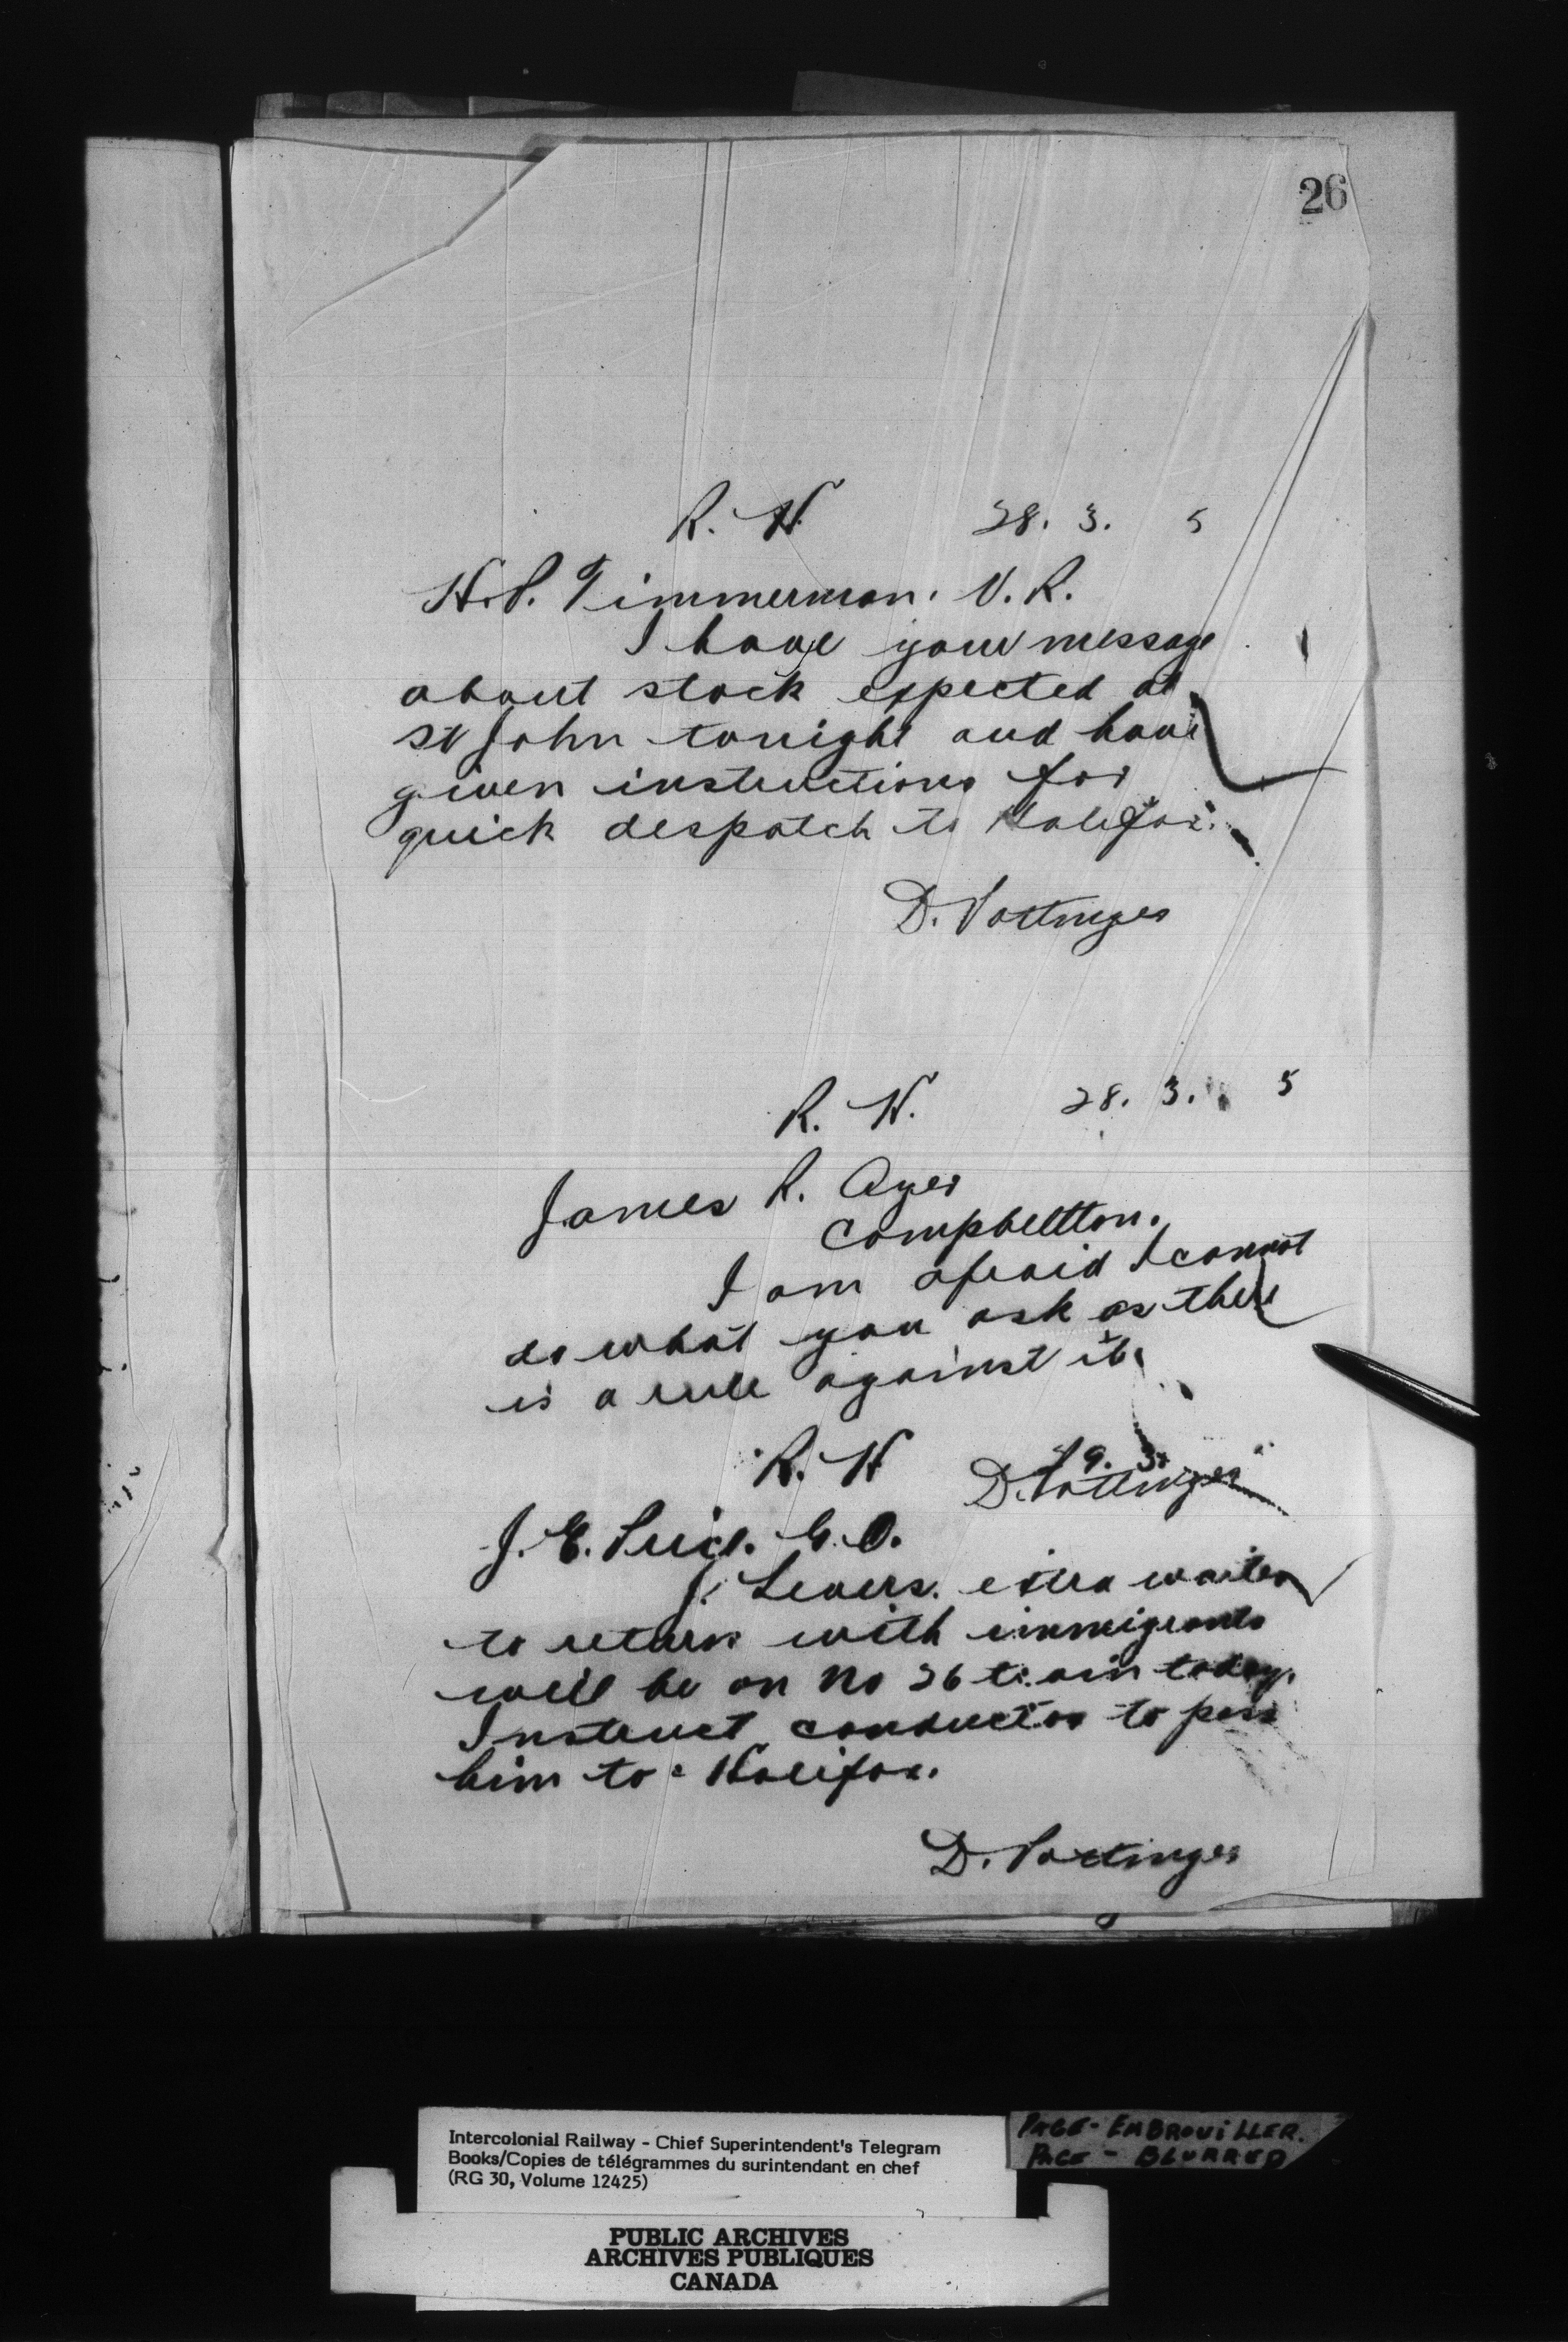 26
R. H. 28. 3. 5
H. P. Timmerman. N. R.
I have your message
about stock expected at
St John tonight and have
given instructions for
quick despatch to Halifax.
D. Pottinger
R. H. 28. 3. 5
James R. Ayer
Campbellton.
I am afraid I cannot
do what you ask as there
is a rule against it.
R. H 29. 3.
D. Pottinger
J. E. Price. G. O.
J. Levers. extra waiter
to return with immigrants
will be on No 26 train today.
Instruct conductor to pass
him to Halifax.
D. Pottinger
Intercolonial Railway - Chief Superintendent's Telegram
Books/Copies de télégrammes du surintendant en chef
(RG 30, Volume 12425)
PAGE - EMBROUILLER.
PAGE - BLURRED
PUBLIC ARCHIVES
ARCHIVES PUBLIQUES
CANADA